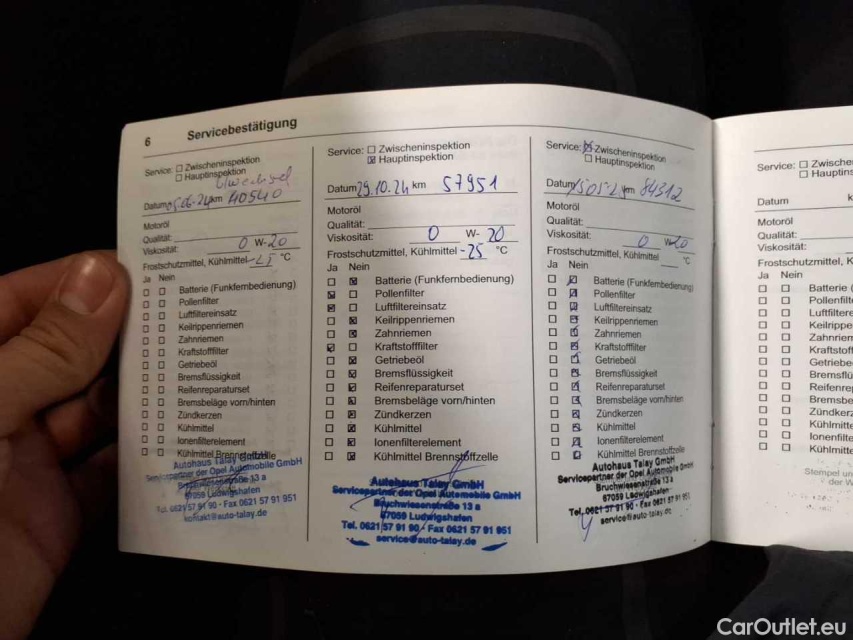 6 Servicebestätigung
Service: ☐ Zwischeninspektion
☐ Hauptinspektion
Ölwechsel
Datum 06.24 km 40540
Motoröl
Qualität:
Viskosität: 0 W- 20
Frostschutzmittel, Kühlmittel °C
Ja Nein
☐ ☐ Batterie (Funkfernbedienung)
☐ ☐ Pollenfilter
☐ ☐ Luftfiltereinsatz
☐ ☐ Keilrippenriemen
☐ ☐ Zahnriemen
☐ ☐ Kraftstofffilter
☐ ☐ Getriebeöl
☐ ☐ Bremsflüssigkeit
☐ ☐ Reifenreparaturset
☐ ☐ Bremsbeläge vorn/hinten
☐ ☐ Zündkerzen
☐ ☐ Kühlmittel
☐ ☐ Ionenfilterelement
☐ ☐ Kühlmittel Brennstoffzelle
Autohaus Talay GmbH
Servicepartner der Opel Automobile GmbH
Bruchwiesenstraße 13 a
67059 Ludwigshafen
Tel. 0621 57 91 90 - Fax 0621 57 91 951
kontakt@auto-talay.de
Service: ☐ Zwischeninspektion
☒ Hauptinspektion
Datum 29.10.24 km 57951
Motoröl
Qualität:
Viskosität: 0 W- 20
Frostschutzmittel, Kühlmittel -25 °C
Ja Nein
☐ ☒ Batterie (Funkfernbedienung)
☒ ☐ Pollenfilter
☒ ☐ Luftfiltereinsatz
☐ ☒ Keilrippenriemen
☐ ☒ Zahnriemen
☒ ☐ Kraftstofffilter
☐ ☒ Getriebeöl
☐ ☒ Bremsflüssigkeit
☐ ☒ Reifenreparaturset
☐ ☒ Bremsbeläge vorn/hinten
☐ ☒ Zündkerzen
☐ ☒ Kühlmittel
☐ ☒ Ionenfilterelement
☐ ☒ Kühlmittel Brennstoffzelle
Autohaus Talay GmbH
Servicepartner der Opel Automobile GmbH
Bruchwiesenstraße 13 a
67059 Ludwigshafen
Tel. 0621 57 91 90 - Fax 0621 57 91 951
service@auto-talay.de
Service: ☒ Zwischeninspektion
☐ Hauptinspektion
Datum km 84312
Motoröl
Qualität:
Viskosität: 0 W- 20
Frostschutzmittel, Kühlmittel °C
Ja Nein
☐ ☒ Batterie (Funkfernbedienung)
☐ ☒ Pollenfilter
☐ ☒ Luftfiltereinsatz
☐ ☒ Keilrippenriemen
☐ ☒ Zahnriemen
☐ ☒ Kraftstofffilter
☐ ☒ Getriebeöl
☐ ☒ Bremsflüssigkeit
☐ ☒ Reifenreparaturset
☐ ☒ Bremsbeläge vorn/hinten
☐ ☒ Zündkerzen
☐ ☒ Kühlmittel
☐ ☒ Ionenfilterelement
☐ ☒ Kühlmittel Brennstoffzelle
Autohaus Talay GmbH
Servicepartner der Opel Automobile GmbH
Bruchwiesenstraße 13 a
67059 Ludwigshafen
Tel. 0621 57 91 90 - Fax 0621 57 91 951
service@auto-talay.de
Service: ☐ Zwische
☐ Hauptins
Datum k
Motoröl
Qualität:
Viskosität:
Frostschutzmittel, K
Ja Nein
☐ ☐ Batterie (
☐ ☐ Pollenfilt
☐ ☐ Luftfiltere
☐ ☐ Keilrippe
☐ ☐ Zahnrie
☐ ☐ Kraftstof
☐ ☐ Getriebe
☐ ☐ Bremsflü
☐ ☐ Reifenre
☐ ☐ Bremsbe
☐ ☐ Zündkerz
☐ ☐ Kühlmitte
☐ ☐ Ionenfilte
☐ ☐ Kühlmitte
Stempel un
der W
CarOutlet.eu